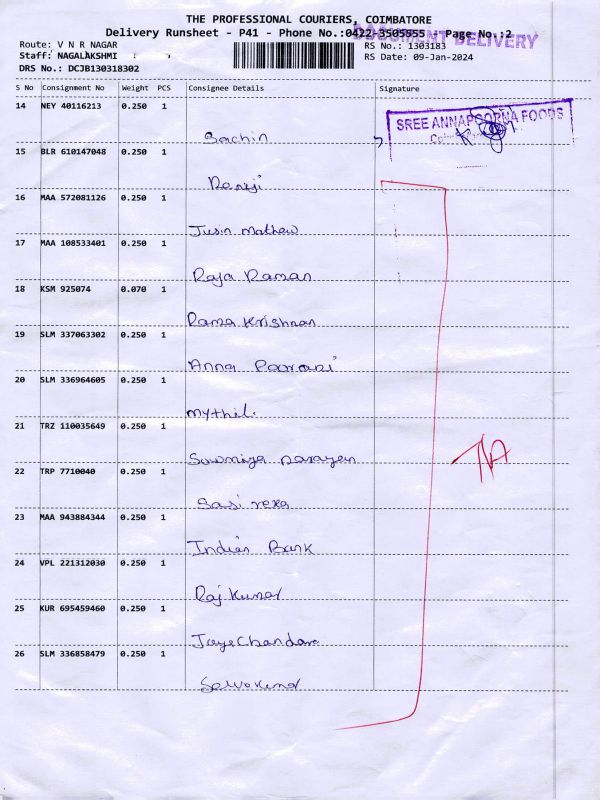 THE PROFESSIONAL COURIERS, COIMBATORE
Delivery Runsheet - P41 - Phone No.:0422-3505555 - Page No.:2
DOCUMENT DELIVERY
Route: V N R NAGAR
RS No.: 1303183
Staff: NAGALAKSHMI
RS Date: 09-Jan-2024
DRS No.: DCJB130318302
S No Consignment No Weight PCS Consignee Details Signature
14 NEY 40116213 0.250 1
Sachin
SREE ANNAPOORNA FOODS
15 BLR 610147048 0.250 1
Renji
16 MAA 572081126 0.250 1
Jusin Mathew
17 MAA 108533401 0.250 1
Raja Raman
18 KSM 925074 0.070 1
Rama Krishnan
19 SLM 337063302 0.250 1
Anna Poorani
20 SLM 336964605 0.250 1
Mythili
21 TRZ 110035649 0.250 1
Sowmiya narayen
TA
22 TRP 7710040 0.250 1
Sasi reka
23 MAA 943884344 0.250 1
Indian Bank
24 VPL 221312030 0.250 1
Raj Kumar
25 KUR 695459460 0.250 1
JayaChandara
26 SLM 336858479 0.250 1